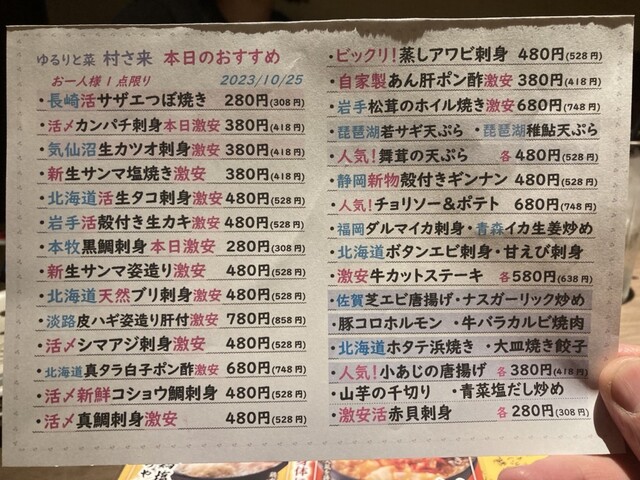 ゆるりと菜 村さ来 本日のおすすめ
お一人様1点限り 2023/10/25
・長崎活サザエつぼ焼き 280円(308円)
・活〆カンパチ刺身本日激安 380円(418円)
・気仙沼生カツオ刺身激安 380円(418円)
・新生サンマ塩焼き激安 380円(418円)
・北海道活生タコ刺身激安 480円(528円)
・岩手活殻付き生カキ激安 480円(528円)
・本牧黒鯛刺身本日激安 280円(308円)
・新生サンマ姿造り激安 480円(528円)
・北海道天然ブリ刺身激安 480円(528円)
・淡路皮ハギ姿造り肝付激安 780円(858円)
・活〆シマアジ刺身激安 480円(528円)
・北海道真タラ白子ポン酢激安 680円(748円)
・活〆新鮮コショウ鯛刺身 480円(528円)
・活〆真鯛刺身激安 480円(528円)
・ビックリ!蒸しアワビ刺身 480円(528円)
・自家製あん肝ポン酢激安 380円(418円)
・岩手松茸のホイル焼き激安 680円(748円)
・琵琶湖若サギ天ぷら ・琵琶湖稚鮎天ぷら
・人気!舞茸の天ぷら 各480円(528円)
・静岡新物殻付きギンナン 480円(528円)
・人気!チョリソー&ポテト 680円(748円)
・福岡ダルマイカ刺身・青森イカ生姜炒め
・北海道ボタンエビ刺身・甘えび刺身
・激安牛カットステーキ 各580円(638円)
・佐賀芝エビ唐揚げ・ナスガーリック炒め
・豚コロホルモン ・牛バラカルビ焼肉
・北海道ホタテ浜焼き ・大皿焼き餃子
・人気!小あじの唐揚げ 各380円(418円)
・山芋の千切り ・青菜塩だし炒め
・激安活赤貝刺身 各280円(308円)